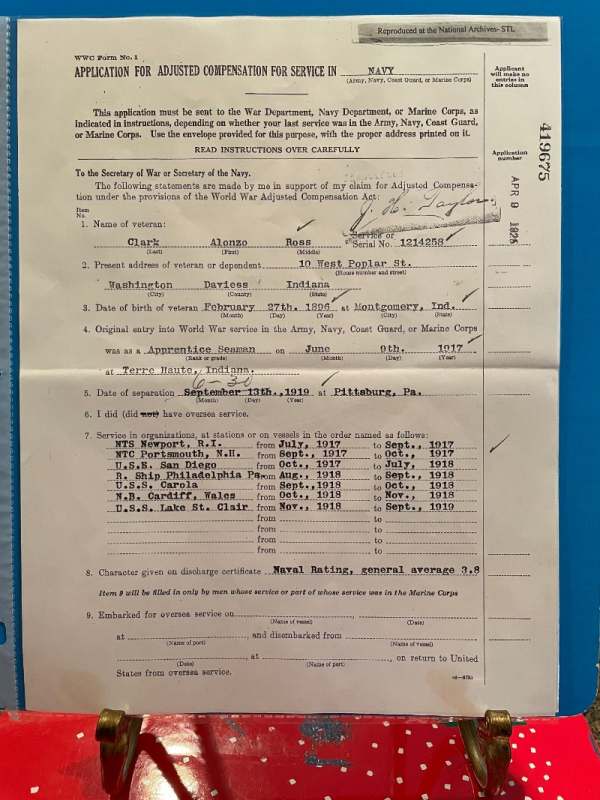 Reproduced at the National Archives- STL
WWC Form No. 1
APPLICATION FOR ADJUSTED COMPENSATION FOR SERVICE IN NAVY
(Army, Navy, Coast Guard, or Marine Corps)
Applicant will make no entries in this column
This application must be sent to the War Department, Navy Department, or Marine Corps, as
indicated in instructions, depending on whether your last service was in the Army, Navy, Coast Guard,
or Marine Corps. Use the envelope provided for this purpose, with the proper address printed on it.
READ INSTRUCTIONS OVER CAREFULLY
Application number
419675
APR 9 1925
To the Secretary of War or Secretary of the Navy.
The following statements are made by me in support of my claim for Adjusted Compensa-
tion under the provisions of the World War Adjusted Compensation Act:
J. H. Taylor
Item No.
1. Name of veteran:
Clark Alonzo Ross Service or Serial No. 1214258
(Last) (First) (Middle)
2. Present address of veteran or dependent 10 West Poplar St.
(House number and street)
Washington Daviess Indiana
(City) (County) (State)
3. Date of birth of veteran February 27th. 1896 at Montgomery, Ind.
(Month) (Day) (Year) (City) (State)
4. Original entry into World War service in the Army, Navy, Coast Guard, or Marine Corps
was as a Apprentice Seaman on June 9th. 1917
(Rank or grade) (Month) (Day) (Year)
at Terre Haute, Indiana.
6-30
5. Date of separation September 13th., 1919 at Pittsburg, Pa.
(Month) (Day) (Year)
6. I did (did not) have oversea service.
7. Service in organizations, at stations or on vessels in the order named as follows:
NTS Newport, R.I. from July, 1917 to Sept., 1917
NTC Portsmouth, N.H. from Sept., 1917 to Oct., 1917
U.S.S. San Diego from Oct., 1917 to July, 1918
R. Ship Philadelphia Pa. from Aug., 1918 to Sept., 1918
U.S.S. Carola from Sept., 1918 to Oct., 1918
N.B. Cardiff, Wales from Oct., 1918 to Nov., 1918
U.S.S. Lake St. Clair from Nov., 1918 to Sept., 1919
from to
from to
from to
from to
8. Character given on discharge certificate Naval Rating, general average 3.8
Item 9 will be filled in only by men whose service or part of whose service was in the Marine Corps
9. Embarked for oversea service on
(Name of vessel) (Date)
at , and disembarked from
(Name of port) (Name of vessel)
, at , on return to United
(Date) (Name of port)
States from oversea service.